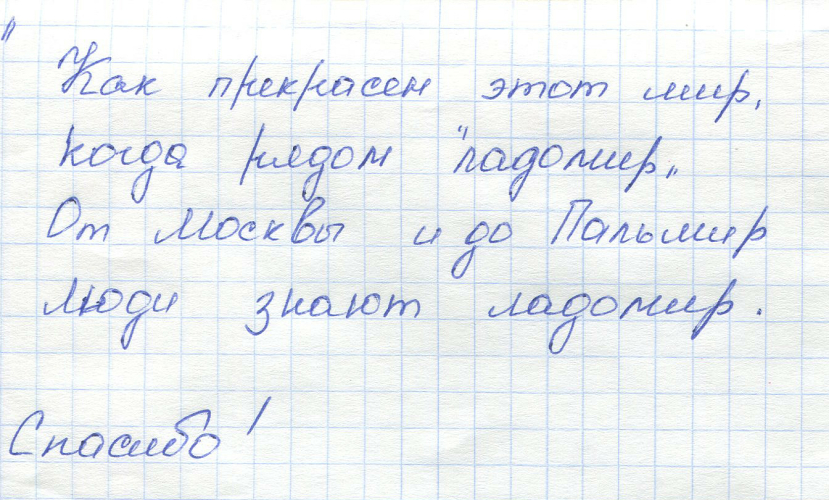 " Как прекрасен этот мир,
когда рядом "ладомир„
От Москвы и до Пальмир
люди знают ладомир.
Спасибо!